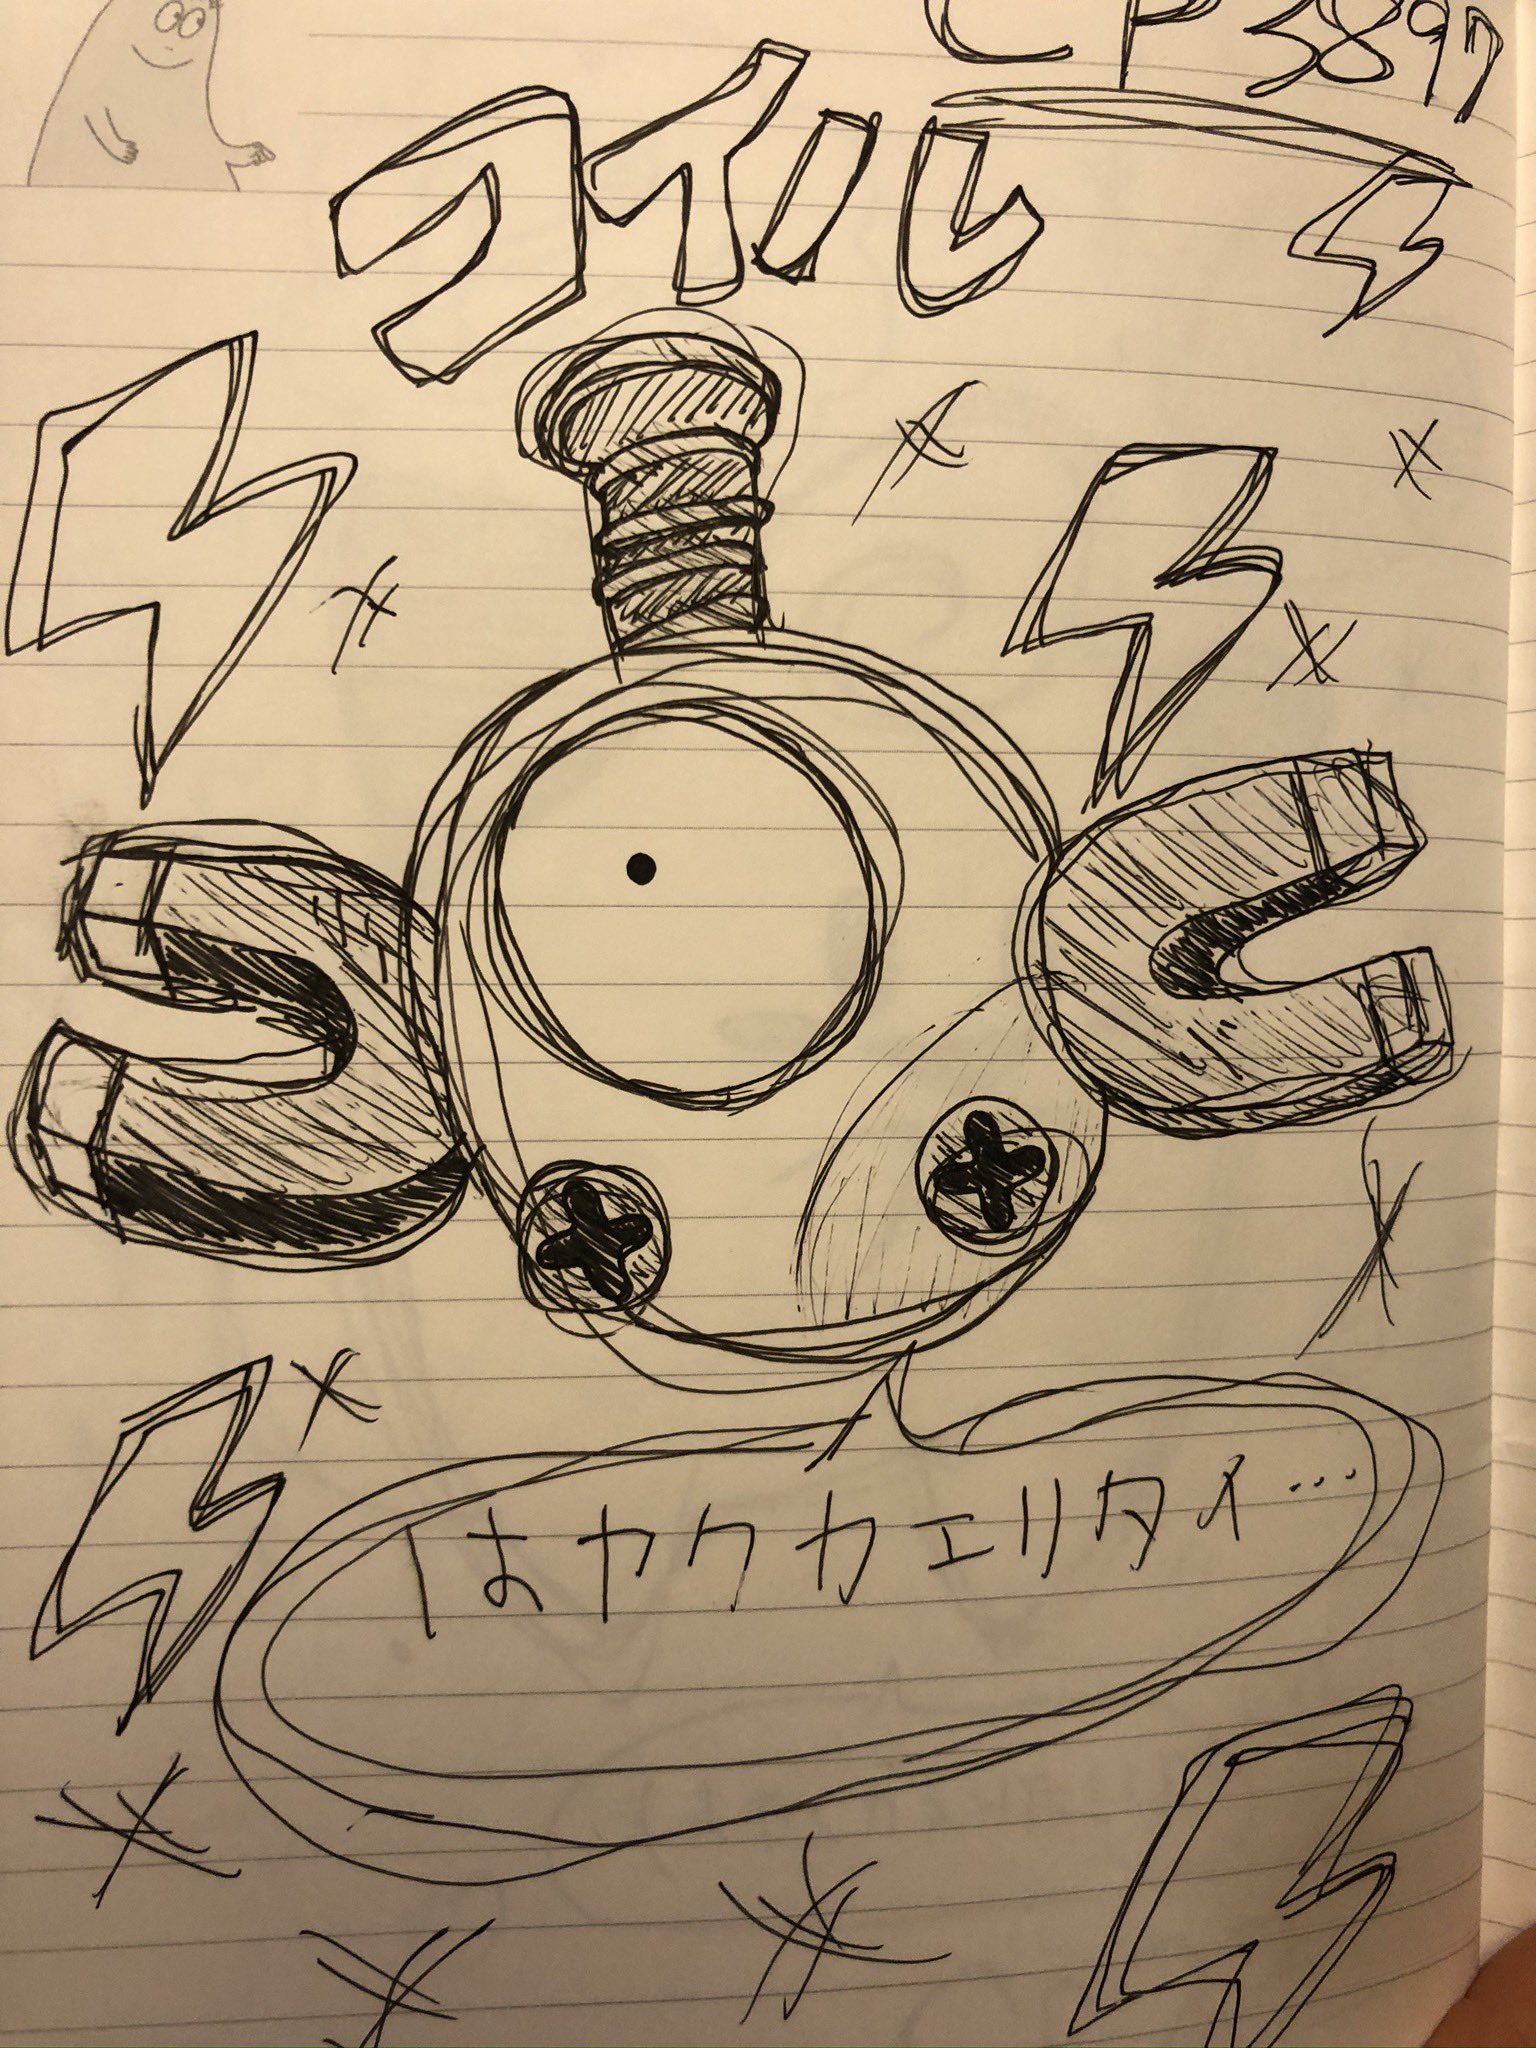 CP3897
コイル
はヤクカエリタイ…